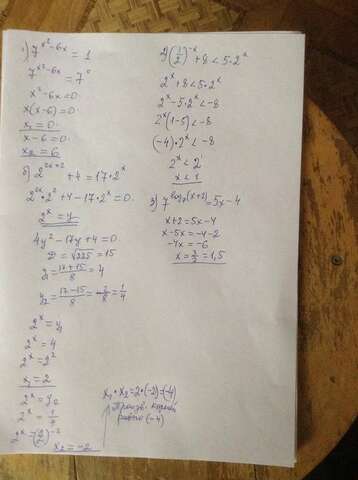 1) 7^{x²-6x} = 1
7^{x²-6x} = 7°
x²-6x=0
x(x-6)=0
x₁=0
x-6=0
x₂=6
б) 2^{2x+2} +4=17·2^x
2^{2x}·2²+4-17·2^x=0
2^x=y
4y²-17y+4=0
D=√225=15
y₁=\frac{17+15}{8}=4
y₂=\frac{17-15}{8}=\frac{2}{8}=\frac{1}{4}
2^x=y₁
2^x=4
2^x=2²
x₁=2
2^x=y₂
2^x=\frac{1}{4}
x₂=-2
x₁·x₂=2·(-2)=(-4)
Произв. корней
равно (-4)
2) (\frac{1}{2})^{-x}+8<5·2^x
2^x+8<5·2^x
2^x-5·2^x<-8
2^x(1-5)<-8
(-4)·2^x<-8
2^x<2
x<1
3) 7^{log₇(x+2)}=5x-4
x+2=5x-4
x-5x=-4-2
-4x=-6
x=\frac{3}{2}=1,5